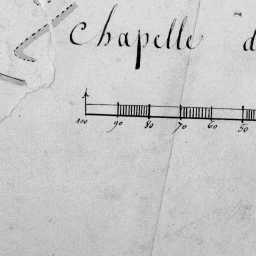 Chapelle d
100 90 80 70 60 50